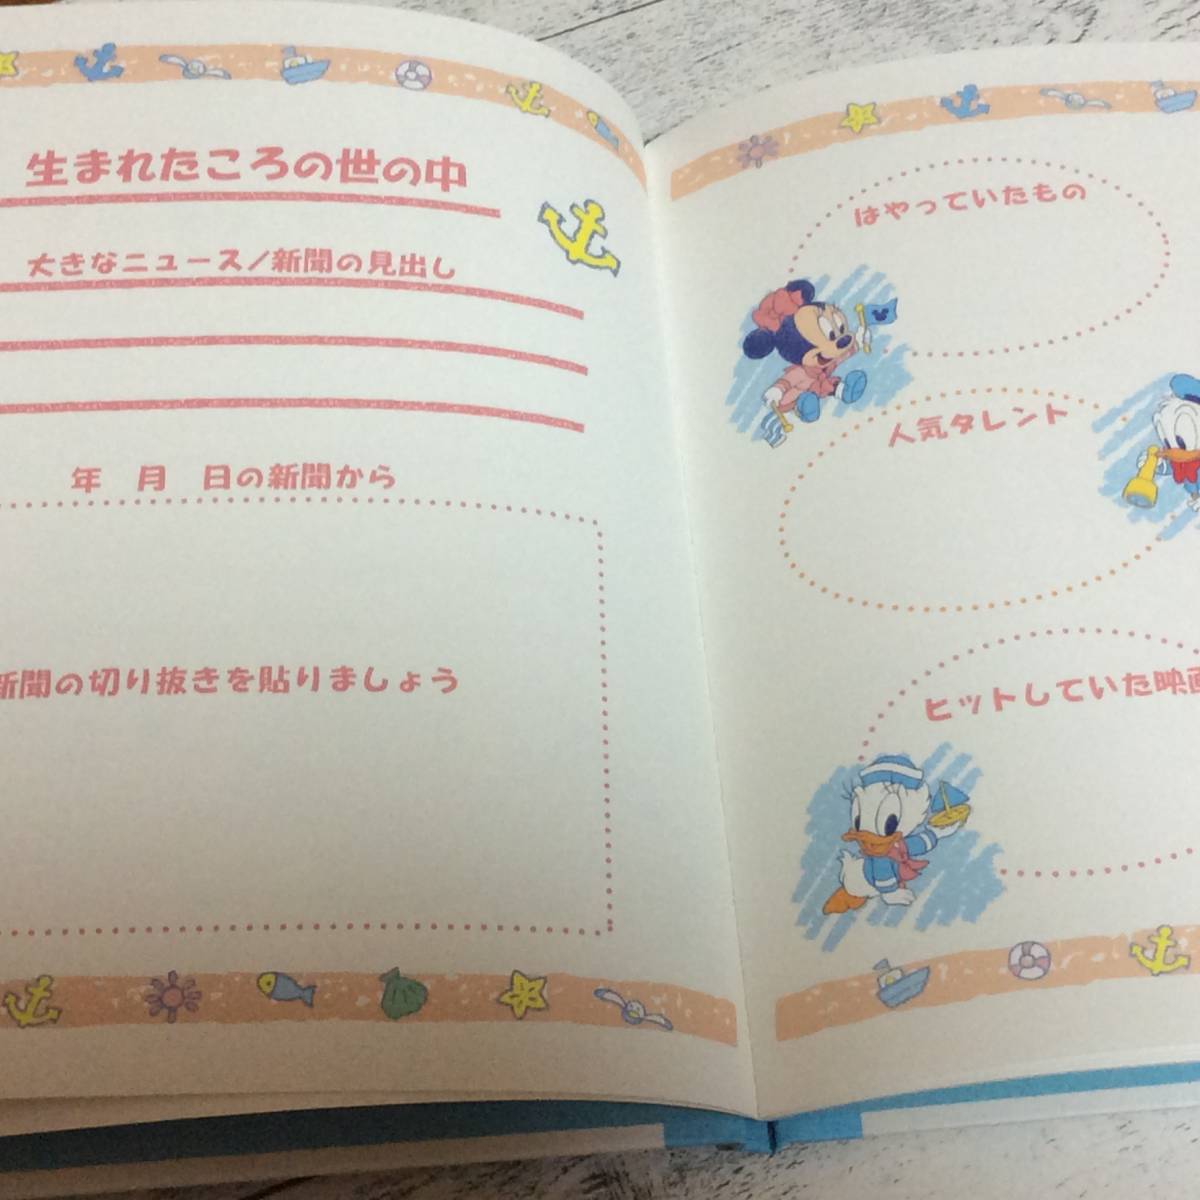 生まれたころの世の中
大きなニュース/新聞の見出し
年 月 日の新聞から
新聞の切り抜きを貼りましょう
はやっていたもの
人気タレント
ヒットしていた映画